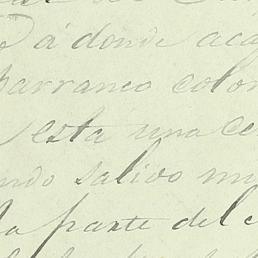 á donde aca
barranco color
está una ce
ndo salivo mu
la parte del c